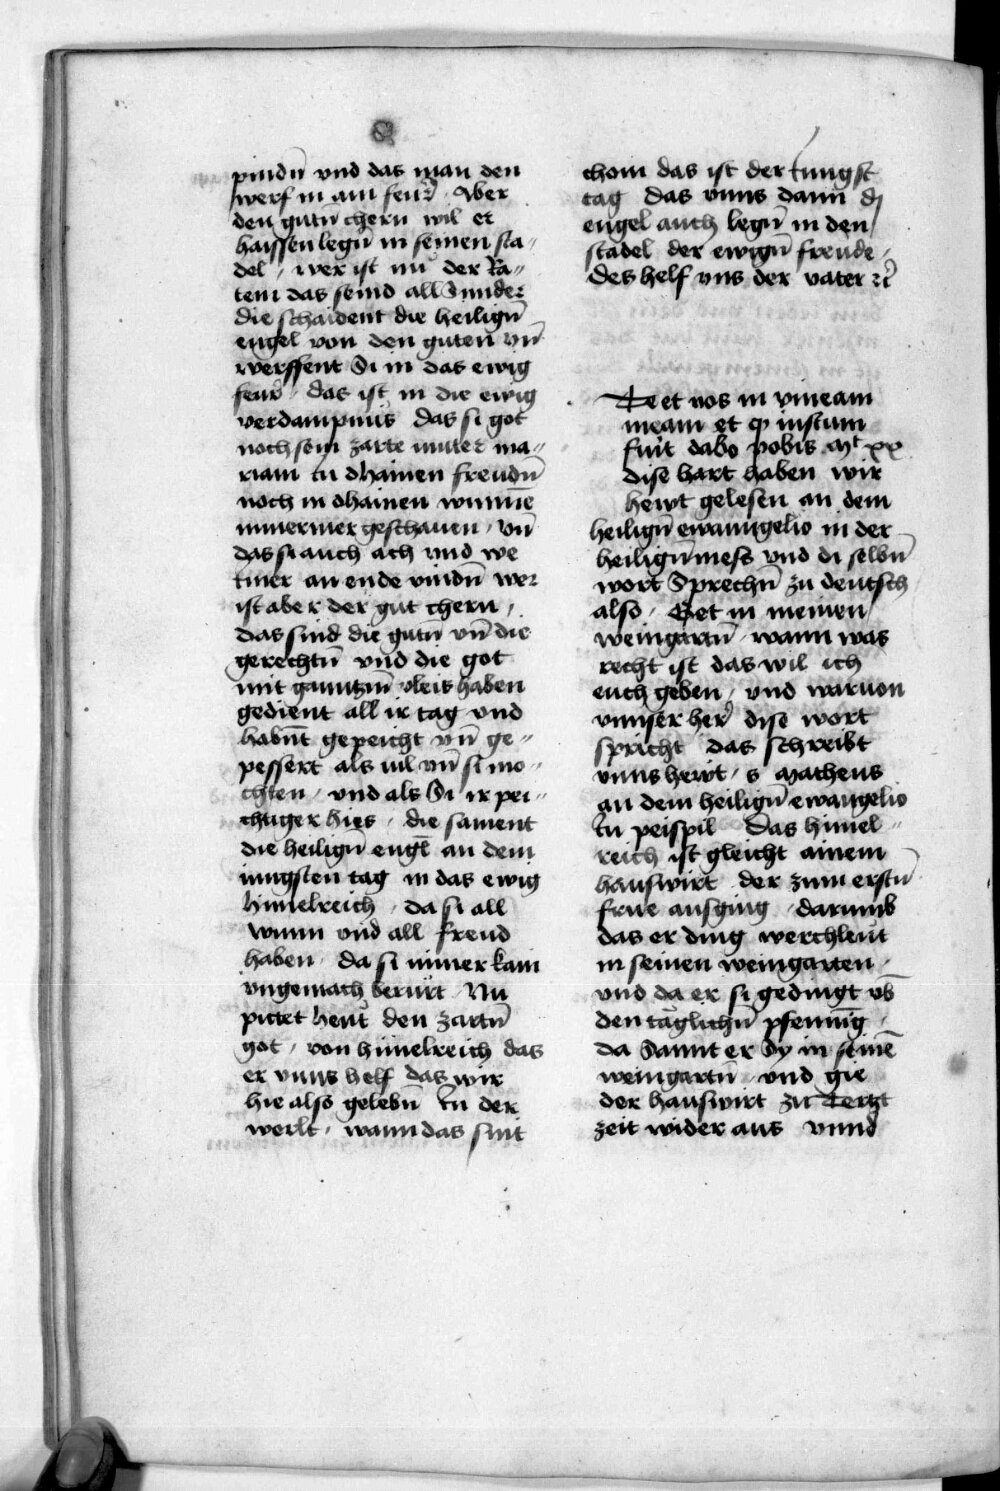 pindn̄ vnd das man den
werf in am feur̄ · Aber
den gutn̄ chern wil er
haissen legn̄ in seinen sta„
del · wer ist nu der Ra„
tem das seind all Sunder
die schaident die heilign̄
engel von den guten vn̄
werffent Si in das ewig
feur̄ · das ist in die ewig
verdampnus das si got
noch sein zarte muter ma„
riam in dhainen freudn̄
noch in dhainen wunnē
nimermer geschauen · vn̄
das si auch ach und we
imer an ende vindn̄ wer
ist aber der gut chern ·
das sind die gutn̄ vn̄ die
gerechtn̄ vnd die got
mit ganntzm̄ vleis haben
gedient all ir tag vnd
habn̄t gepeicht vn̄ ge„
pessert als vil vn̄ si mo„
chten · vnd als Si ir pei„
chtiger hies · die sament
die heilign̄ engl̄ an dem
iungsten tag in das ewig
himelreich · da si all
wunn vnd all freud
haben · da si nimer kain
vngemach berurt · Nu
pittet heut den zartn̄
got · von himelreich das
er vnns helf das wir
hie also gelebn̄ in der
werlt · wann das snit
chom das ist der iungst
tag das vnns dann di
engel auch legn̄ in den
stadel der ewign̄ freude ·
des helf vns der vater ꝛc̄
Ite et vos in vineam
meam et q̄ iustum
fuit dabo vobis Mt xx
dise wart haben wir
hewt gelesen an dem
heilign̄ ewanngelio in der
heilign̄ mess vnd di selbn̄
wort Sprechn̄ zu deutsch
also · Get in meinen
weingartn̄ · wann was
recht ist das wil ich
euch geben · vnd waruon
vnnser her̄ dise wort
spricht das schreibt
vnns hewt · s Matheus
an dem heilign̄ ewangelio
in peispil Das himel„
reich ist gleicht ainem
hauswirt der zum erstn̄
frue ausging · darumb
das er ding werchleut
in seinen weingarten ·
vnd da er si gedingt vb̄
den taglichn̄ pfenning ·
da Sannt er Sy in seinē
weingartn̄ · vnd gie
der hauswirt zu Tertzt
zeit wider aus vnnd